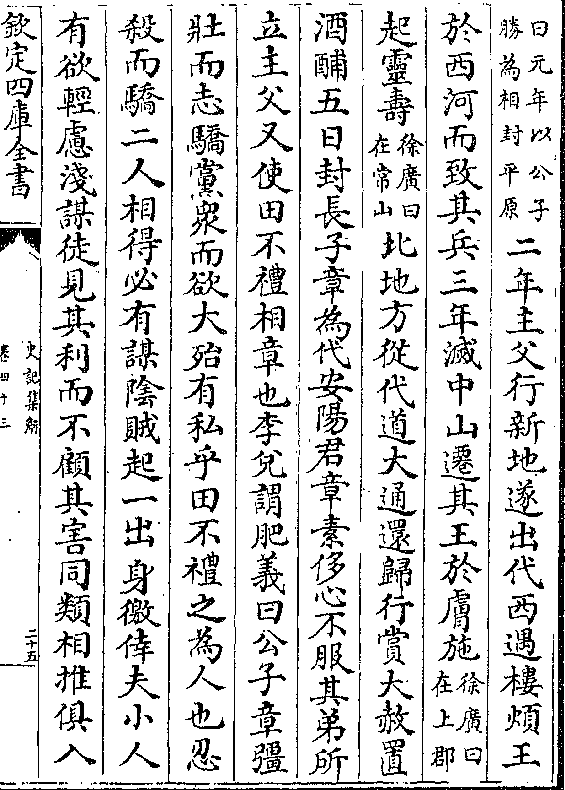 曰元年以公子
勝為相封平原
二年主父行新地遂出代西遇樓煩王
於西河而致其兵三年滅中山遷其王於膚施
徐廣曰
在上郡
起靈壽
徐廣曰
在常山
北地方從代道大通還歸行賞大赦置
酒酺五日封長子章為代安陽君章素侈心不服其弟所
立主父又使田不禮相章也李兌謂肥義曰公子章彊
壯而志驕黨衆而欲大殆有私乎田不禮之為人也忍
殺而驕二人相得必有謀陰賊起一出身徼倖夫小人
有欲輕慮淺謀徒見其利而不顧其害同類相推俱入
欽定四庫全書
史記集解
卷四十三
二十五